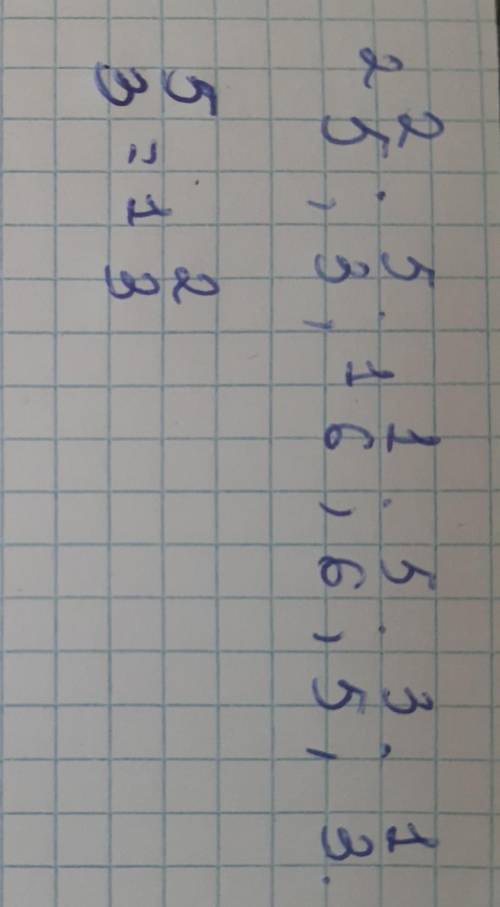 2 2/5; 5/3; 1 1/6; 5/6; 3/5; 1/3.
5/3 = 1 2/3